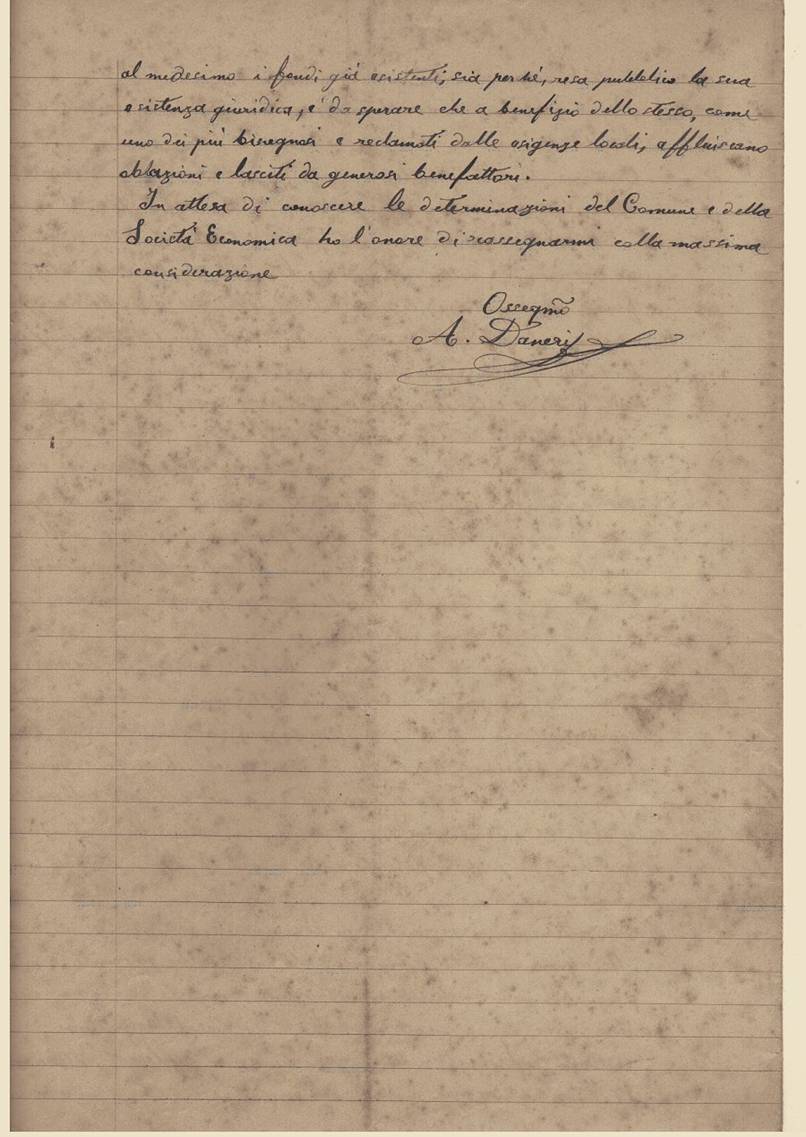 al medesimo i fondi già esistenti, sia perché, resa pubblica la sua
esistenza giuridica, è da sperare che a benefizio dello stesso, come
uno dei più bisognosi e reclamati dalle esigenze locali, affluiscano
oblazioni e lasciti da generosi benefattori.
In attesa di conoscere le determinazioni del Comune e della
Società Economica ho l'onore di rassegnarmi colla massima
considerazione
Ossegmo
A. Daneri